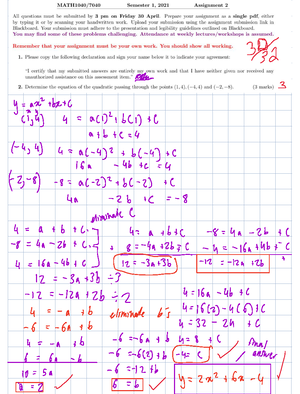 MATH1040/7040 Semester 1, 2021 Assignment 2
All questions must be submitted by 3 pm on Friday 30 April. Prepare your assignment as a single pdf, either
by typing it or by scanning your handwritten work. Upload your submission using the assignment submission link in
Blackboard. Your assignment must adhere to the presentation and legibility guidelines outlined on Blackboard.
You may find some of these problems challenging. Attendance at weekly lectures/workshops is assumed.
Remember that your assignment must be your own work. You should show all working.
1. Please copy the following declaration and sign your name below it to indicate your agreement:
"I certify that my submitted answers are entirely my own work and that I have neither given nor received any
unauthorized assistance on this assessment item."
2. Determine the equation of the quadratic passing through the points (1, 4), (−4, 4) and (−2, −8). (3 marks) 3
y = ax² + bx + c
(1, 4) 4 = a(1)² + b(1) + c
a + b + c = 4
(-4, 4) 4 = a(-4)² + b(-4) + c
16a - 4b + c = 4
(-2, -8) -8 = a(-2)² + b(-2) + c
4a - 2b + c = -8
eliminate c
4 = a + b + c
-8 = 4a - 2b + c
4 = 16a - 4b + c
4 = a + b + c
+ 8 = -4a + 2b - c
12 = -3a + 3b
-8 = 4a - 2b + c
-4 = -16a + 4b - c
-12 = -12a + 2b
12 = -3a + 3b ÷3
-12 = -12a + 2b ÷2
4 = -a + b
-6 = -6a + b
eliminate b's
4 = -a + b
6 = 6a - b
10 = 5a
a = 2
-6 = -6a + b
-6 = -6(2) + b
-6 = -12 + b
6 = b
4 = 16a - 4b + c
4 = 16(2) - 4(6) + c
4 = 32 - 24 + c
4 = 8 + c
-4 = c
final answer
y = 2x² + 6x - 4